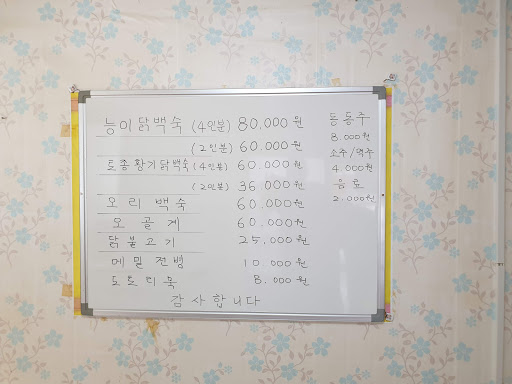 능이닭백숙 (4인분) 80,000원
(2인분) 60.000원
토종황기닭백숙 (4인분) 60.000원
(2인분) 36.000원
오리 백숙 60.000원
오골계 60.000원
닭불고기 25,000원
메밀전병 10.000원
도토리묵 8,000원
감사합니다
동동주
8.000원
소주/맥주
4.000원
음료
2.000원